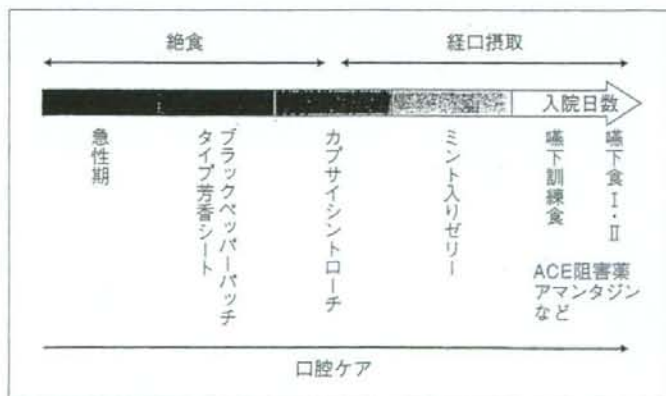 絶食
経口摂取
入院日数
急性期
ブラックペッパーパッチ
タイプ芳香シート
カプサイシントローチ
ミント入りゼリー
嚥下訓練食
嚥下食Ⅰ・Ⅱ
ACE阻害薬
アマンタジン
など
口腔ケア